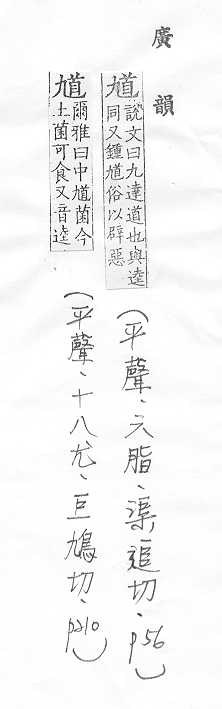 廣韻
馗
說文曰九達道也與逵
同又鍾馗俗以辟惡
(平聲、六脂、渠追切、p56)
馗
爾雅曰中馗菌今
土菌可食又音逵
(平聲、十八尤、巨鳩切、p210)